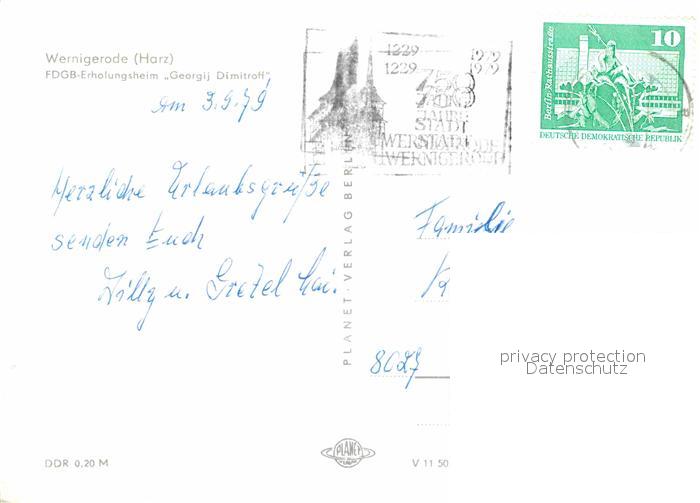 Wernigerode (Harz)
FDGB-Erholungsheim „Georgij Dimitroff"
Am 3.9.79
Herzliche Urlaubsgrüße
senden Euch
Willy u. Gretel
1229 1979
1229 1979
750
JAHRE
STADT
WERNIGERODE
10
Berlin-Rathausstraße
DEUTSCHE DEMOKRATISCHE REPUBLIK
PLANET-VERLAG BERLIN
Familie
K
8027
privacy protection
Datenschutz
DDR 0,20 M
PLANET
V 11 50